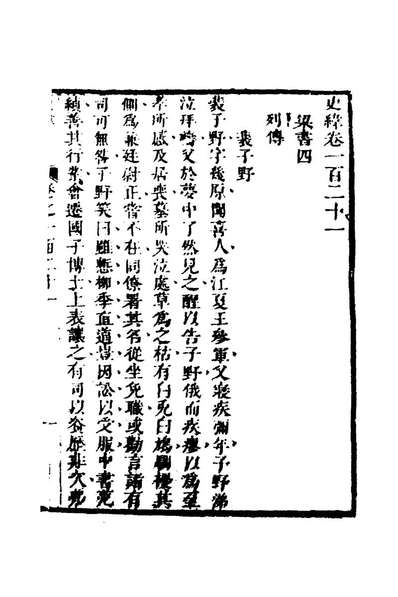 史緯卷一百二十一
梁書四
列傳
裴子野
裴子野字幾原聞喜人為江夏王參軍父寢疾彌年子野涕
泣拜禱父於夢中了然見之醒以告子野俄而疾瘳以為至
孝所感及居喪墓所哭泣處草為之枯有白兔白鳩馴擾其
側為兼廷尉正嘗不在同僚署其名從坐免職或勸言諸有
司可無咎子野笑曰雖慙柳季直道豈因訟以受服中書范
縝善其行業會遷國子博士上表讓之有司以資歷非次弗